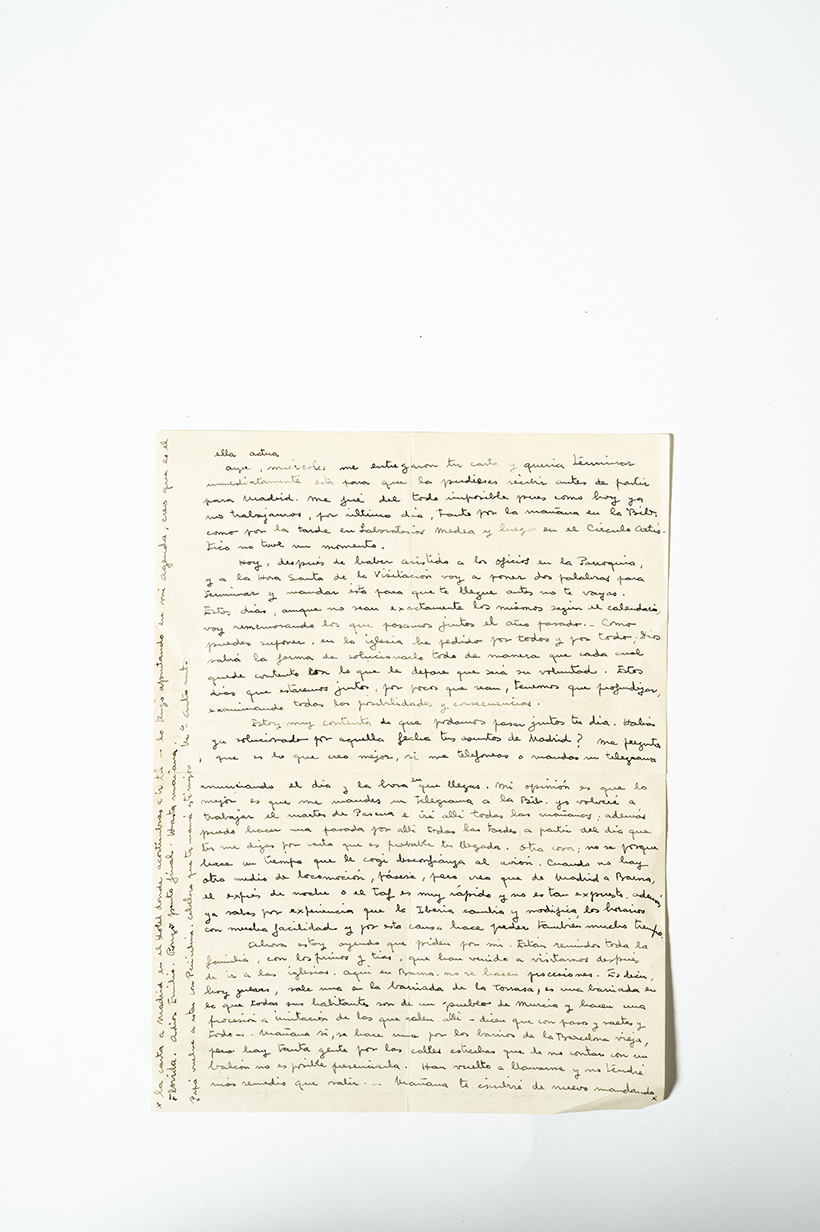 ella actua
ayer, miércoles me entregaron tu carta y queria terminar
inmediatamente esta para que la pudieses recibir antes de partir
para Madrid. Me fué del todo imposible pues como hoy ya
no trabajamos, por último dia, tanto por la mañana en la Bibl.
como por la tarde en Laboratorios Medea y luego en el Círculo Artís-
tico no tuve un momento.
Hoy, después de haber asistido a los oficios en la Parroquia,
y a la Hora Santa de la Visitación voy a poner dos palabras para
terminar y mandar esta para que te llegue antes no te vayas.
Estos dias, aunque no sean exactamente los mismos según el calendario,
voy rememorando los que pasamos juntos el año pasado.- Como
puedes suponer, en la iglesia he pedido por todos y por todo; Dios
sabrá la forma de solucionarlo todo de manera que cada cual
quede contento con lo que le depare que será su voluntad. Estos
dias que estaremos juntos, por pocos que sean, tenemos que profundizar,
examinando todas las posibilidades y consecuencias.
Estoy muy contenta de que podamos pasar juntos tu dia. Habás
ya solucionado por aquella fecha tus asuntos de Madrid? Me pregunto
que es lo que creo mejor, si me telefoneas o mandas un telegrama
anunciando el dia y la hora en que llegas. Mi opinión es que lo
mejor es que me mandes un telegrama a la Bibl. yo volveré a
trabajar el martes de Pascua e iré alli todas las mañanas; además
puedo hacer una pasada por alli todas las tardes a partir del dia que
tu me digas por carta que es probable tu llegada. Otra cosa; no se porque
hace un tiempo que le cogi desconfianza al avión. Cuando no hay
otro medio de locomoción, pásese, pero creo que de Madrid a Barna,
el exprés de noche o el Taf es muy rápido y no es tan expuesto, además
ya sabes por experiencia que la Iberia cambia y modifica los horarios
con mucha facilidad y por esta causa hace perder tambien mucho tiempo.
Ahora estoy oyendo que piden por mi. Estan reunidos toda la
familia, con los primos y tias, que han venido a visitarnos después
de ir a las iglesias. Aqui en Barna. no se hacen procesiones. Es decir,
hoy jueves, sale una en la barriada de la Torrasa, es una barriada en
la que todas sus habitantes son de un "pueblo" de Murcia y hacen una
procesión a imitación de las que salen alli - dicen que con pasos y saetas y
todo -. Mañana si, se hace una por los barrios de la Barcelona vieja,
pero hay tanta gente por las calles estrechas que de no contar con un
balcón no es posible presenciarla. Han vuelto a llamarme y no tendré
más remedio que salir. - Mañana te escribiré de nuevo mandando x
x la carta a Madrid en el Hotel donde acostumbras ir tú - lo tengo apuntado en mi agenda, creo que es el
Florida. Adios Emilio. Pongo punto final. Hasta mañana.
Papá vuelve a estar con Penicilina. celebro que tu mamá